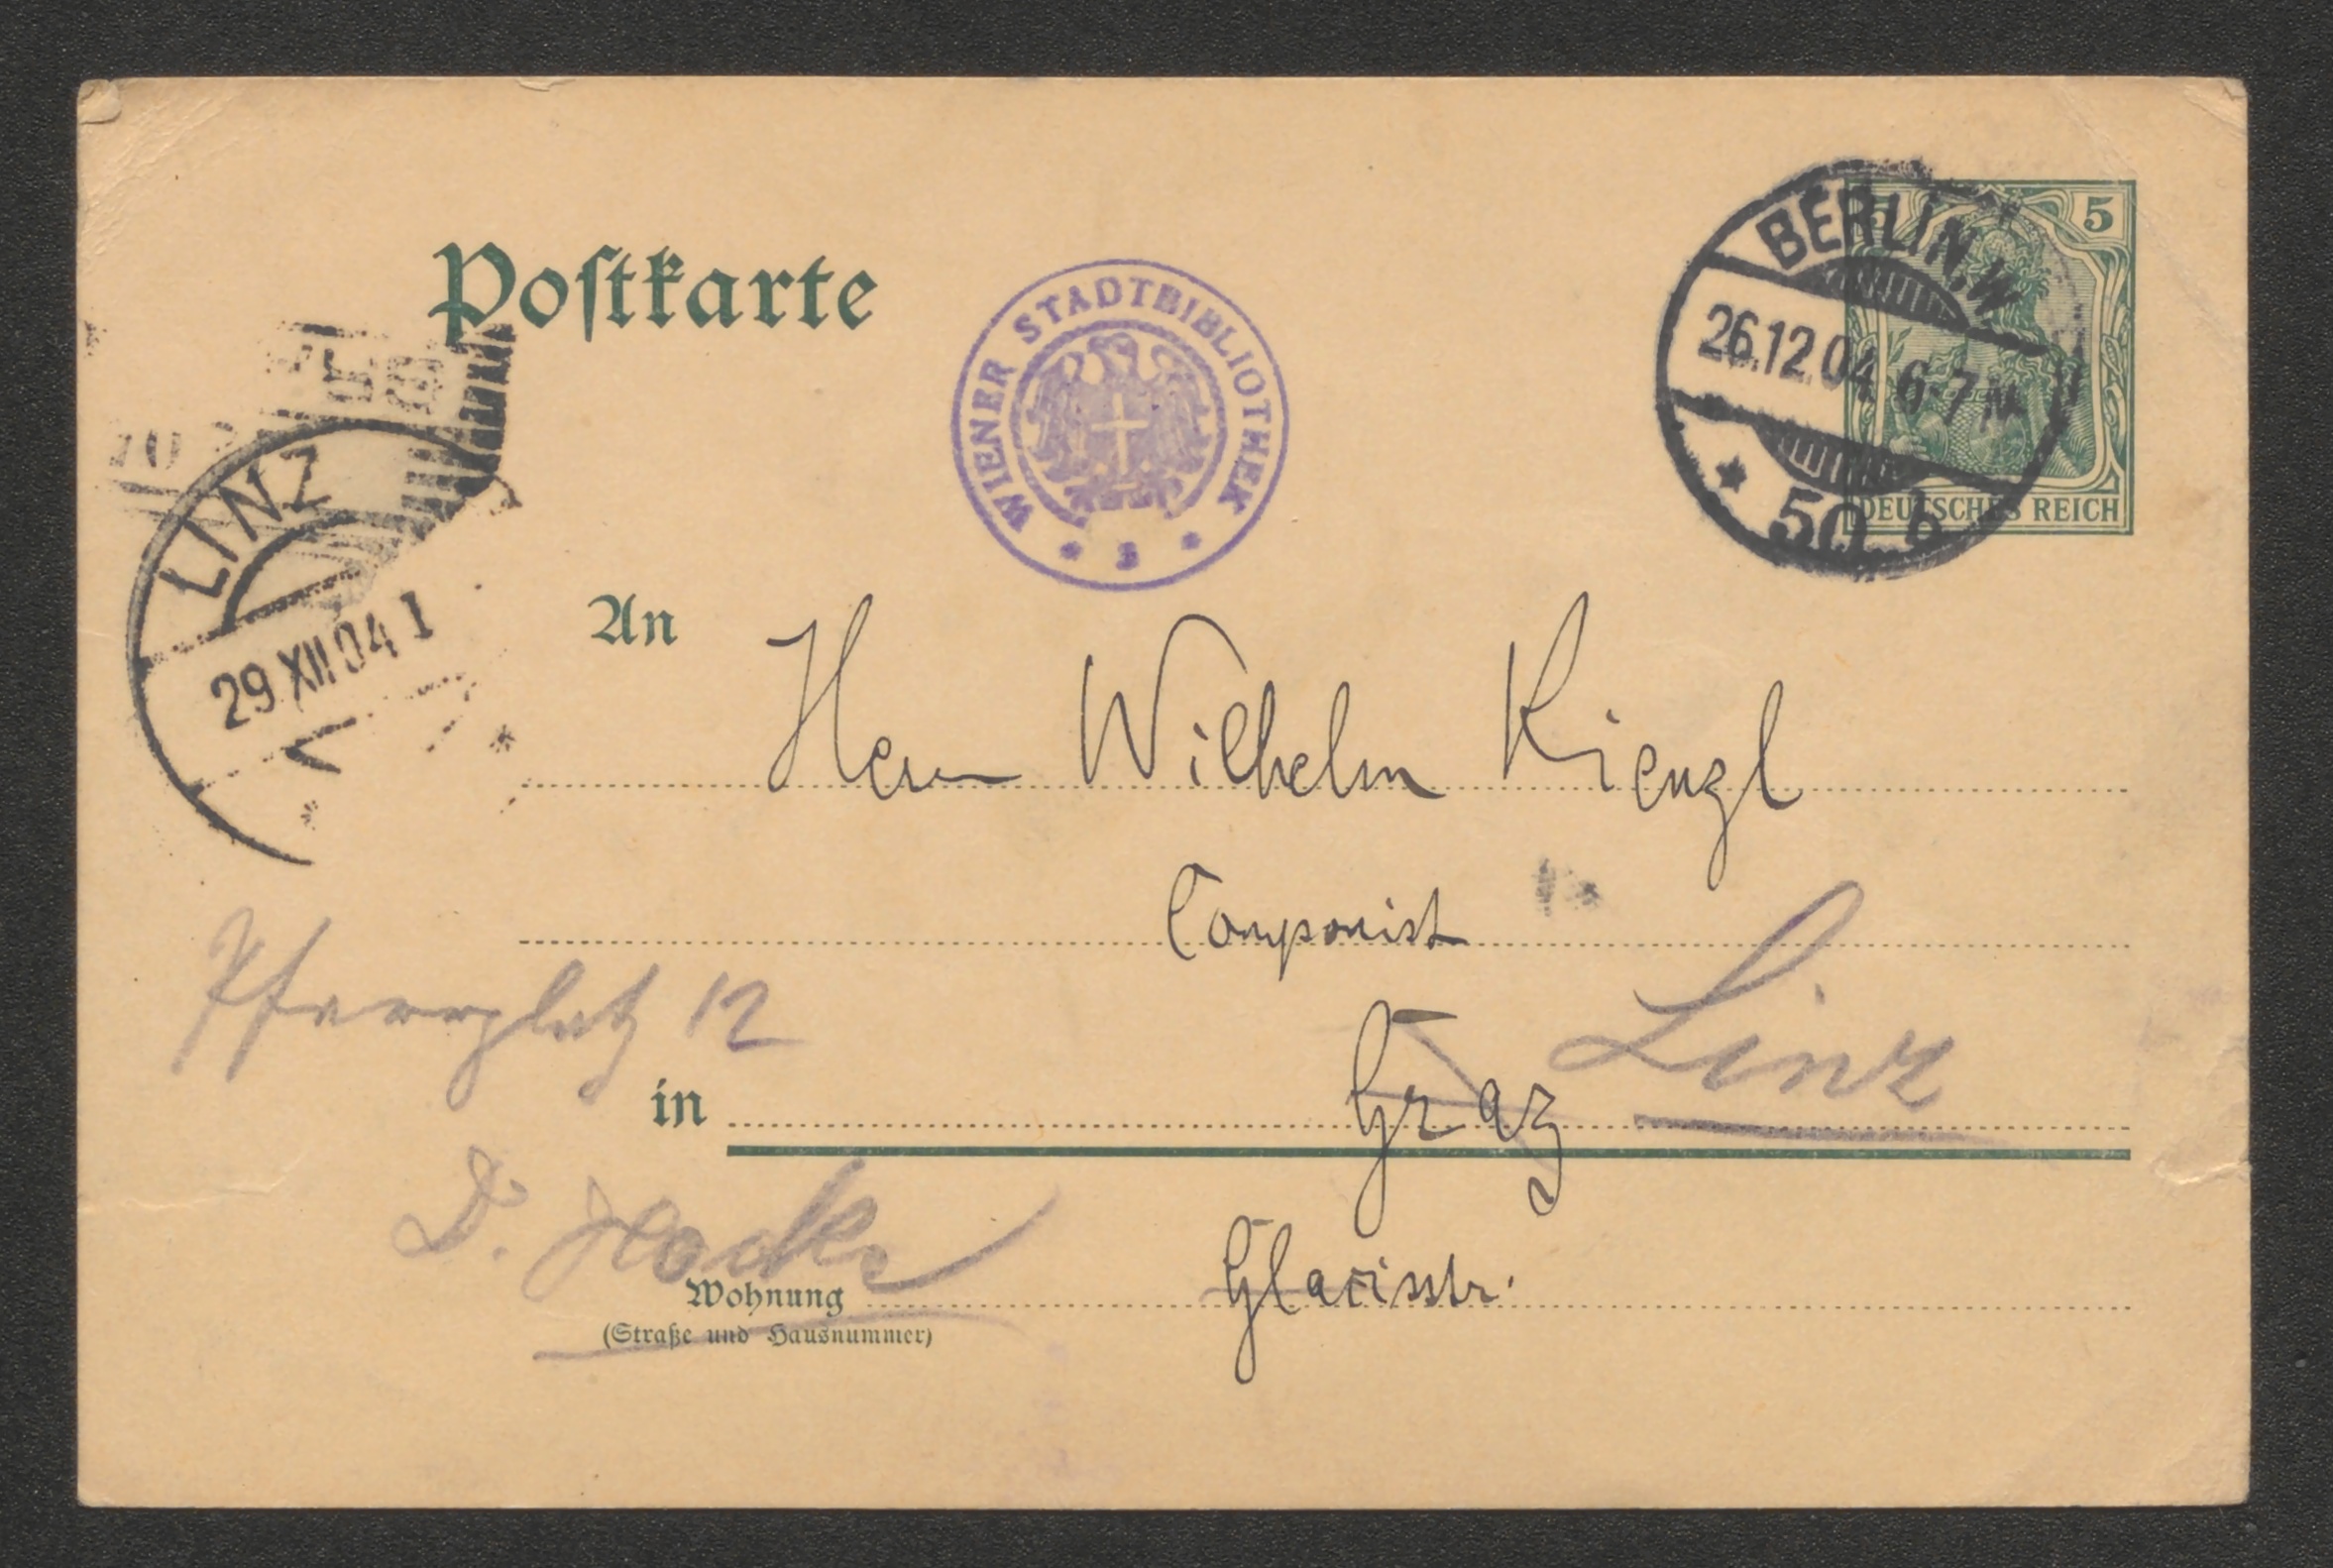 Postkarte
WIENER STADTBIBLIOTHEK
BERLIN.W.
26.12.04 6-7N.
* 50 b
5
DEUTSCHES REICH
LINZ
29 XII 04 I
An Herrn Wilhelm Kienzl
Componist
Pfarrplatz 12
in Graz Linz
D.
Wohnung Glacisstr.
(Straße und Hausnummer)